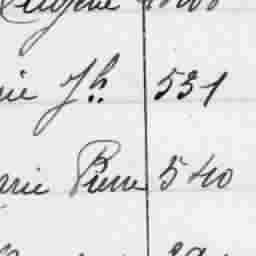 Eugène
ie Jh. 531
rrie Pierre 540